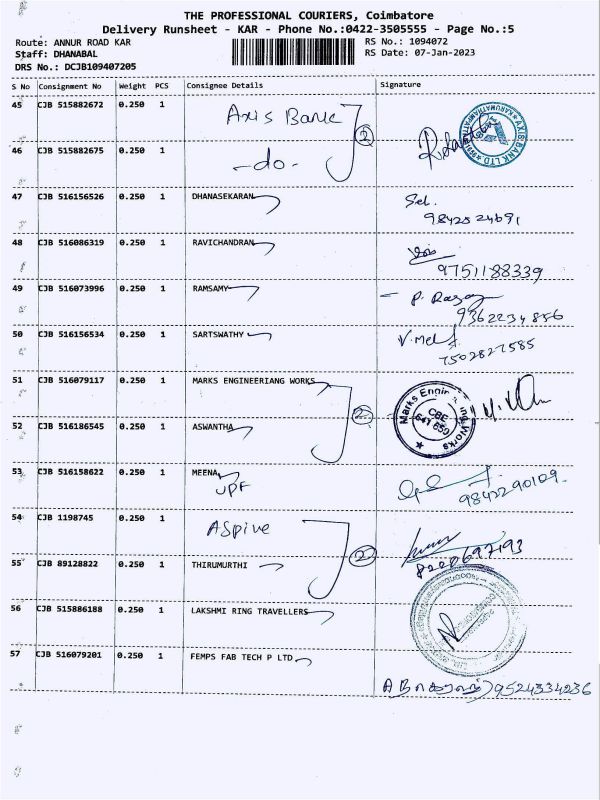 THE PROFESSIONAL COURIERS, Coimbatore
Delivery Runsheet - KAR - Phone No.:0422-3505555 - Page No.:5
Route: ANNUR ROAD KAR
RS No.: 1094072
Staff: DHANABAL
RS Date: 07-Jan-2023
DRS No.: DCJB109407205
S No Consignment No Weight PCS Consignee Details Signature
45 CJB 515882672 0.250 1 Axis Bank 2
AXIS BANK LTD
46 CJB 515882675 0.250 1 -do-
47 CJB 516156526 0.250 1 DHANASEKARAN Sel.
9842524691
48 CJB 516086319 0.250 1 RAVICHANDRAN
9751188339
49 CJB 516073996 0.250 1 RAMSAMY
9362234856
50 CJB 516156534 0.250 1 SARTSWATHY
7502827585
51 CJB 516079117 0.250 1 MARKS ENGINEERIANG WORKS 2
Marks Engineering Works
CBE
641 659
52 CJB 516186545 0.250 1 ASWANTHA
53 CJB 516158622 0.250 1 MEENA
UPF
9842290109
54 CJB 1198745 0.250 1 ASpire 2
8220697193
55 CJB 89128822 0.250 1 THIRUMURTHI
56 CJB 515886188 0.250 1 LAKSHMI RING TRAVELLERS
57 CJB 516079201 0.250 1 FEMPS FAB TECH P LTD
9524334236